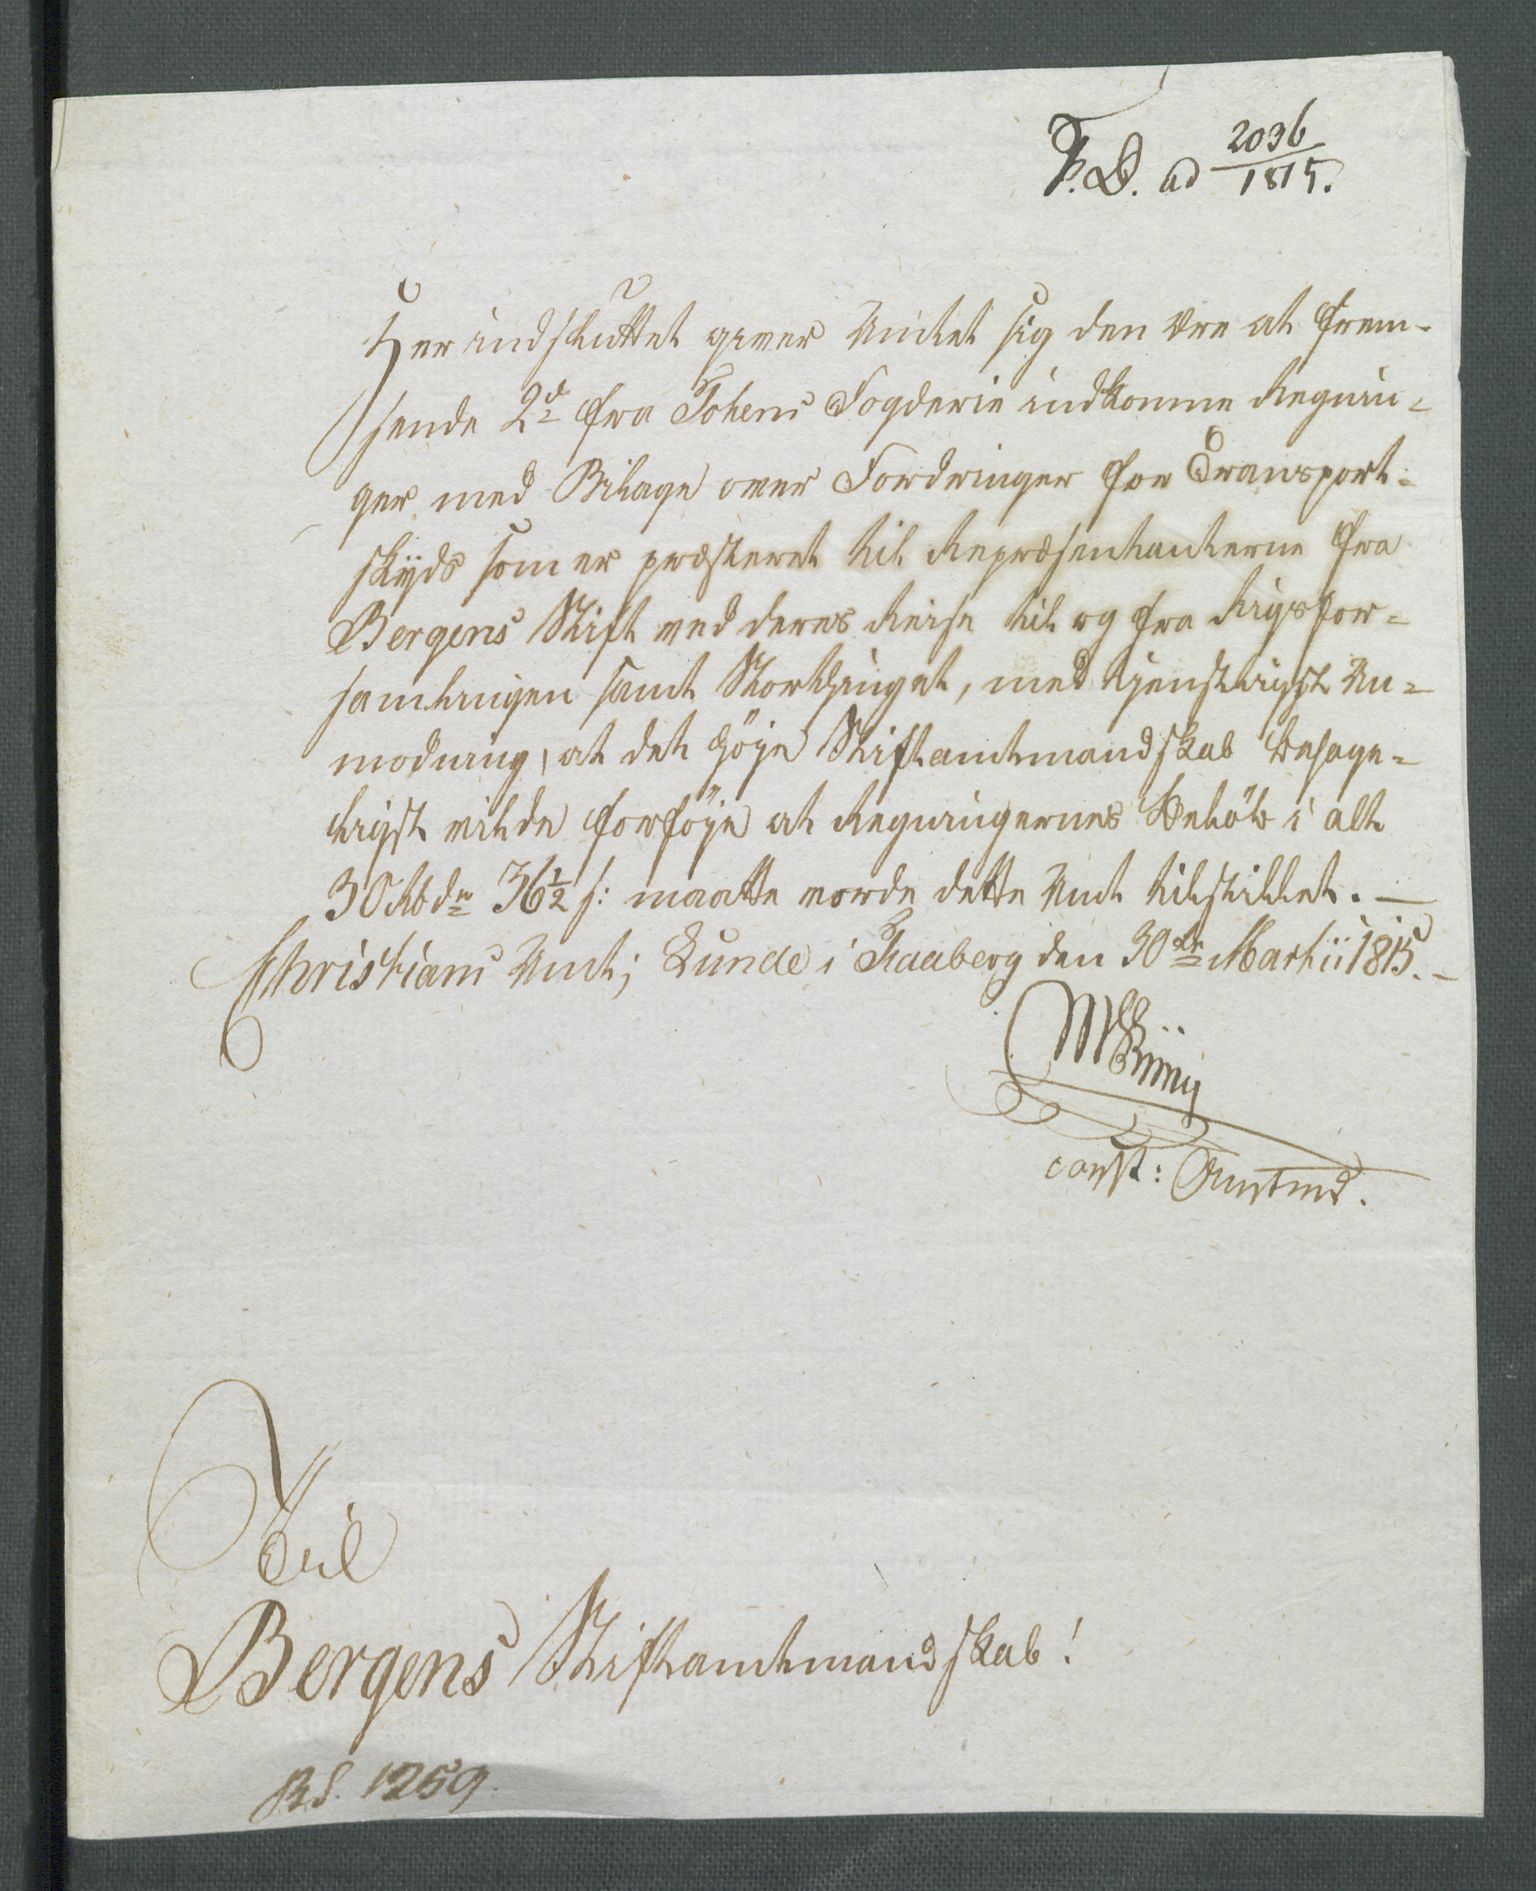 F. D. ad 2036/1815.
Herindsluttet giver Amtet sig den Ære at frem-
sende 2de fra Totens Fogderie indkomne Regnin-
ger med Bilage over Fordringer for Transport-
skyds som er præsteret til Repræsentanterne fra
Bergens Stift ved deres Reise til og fra Rigsfor-
samlingen samt Storthinget, med tjenstligst An-
modning, at det høje Stiftamtmandskab behage-
ligst vilde forføje at Regningernes Beløb i alt
30 Rbdr 36½ s: maatte vorde dette Amt tilstillet. —
Christians Amt; Lunde i Faaberg den 30te Martii 1815. –
const: Amtmd.
Til
Bergens Stiftamtmandskab!
Bd. 1259.